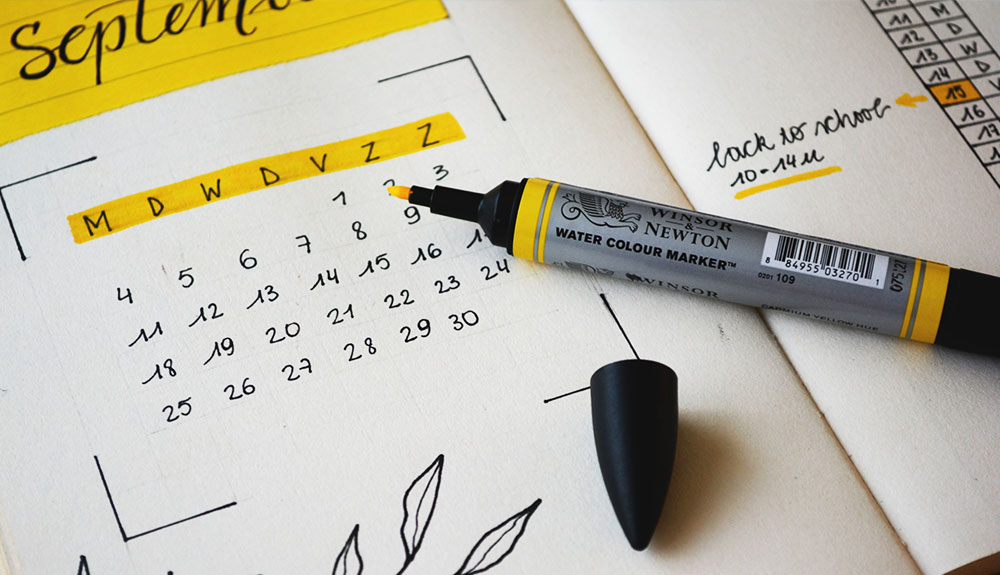 Septem
M D W D V Z Z
1 2 3
4 5 6 7 8 9
11 12 13 14 15 16
18 19 20 21 22 23 24
25 26 27 28 29 30
WINSOR
&
NEWTON
WATER COLOUR MARKER™
8 84955 03270 1
0201 109
WINSOR
CADMIUM YELLOW HUE
back to school
10-14u
10
11 M
12 D
13 W
14 D
15 V
16
17